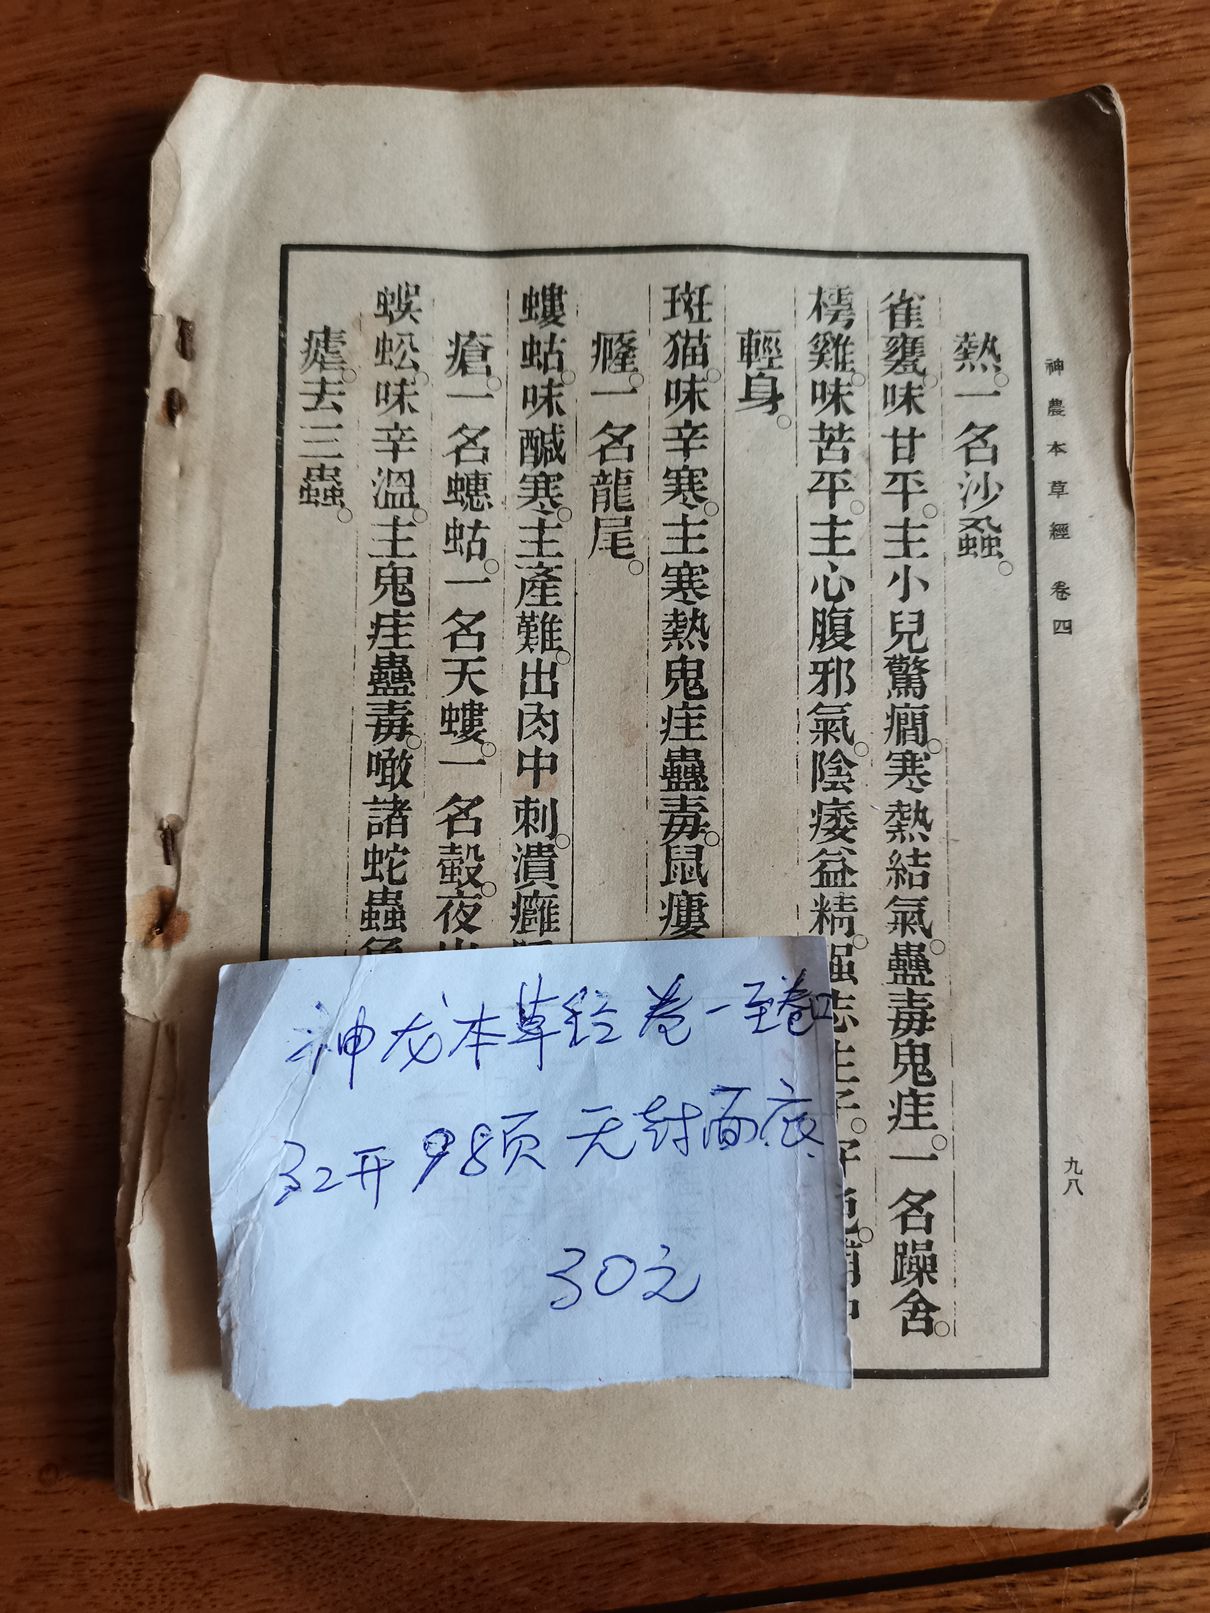 神農本草經 卷四
九八
熱。一名沙蝨。
雀甕。味甘平。主小兒驚癇。寒熱結氣。蠱毒鬼疰。一名躁舍。
樗雞。味苦平。主心腹邪氣。陰痿益精。强志生子。好色。補中
輕身。
斑猫。味辛寒。主寒熱鬼疰蠱毒。鼠瘻
癃。一名龍尾。
螻蛄。味醎寒。主產難。出肉中刺。潰癰
瘡。一名蟪蛄。一名天螻。一名螜。夜出
蜈蚣。味辛溫。主鬼疰蠱毒。噉諸蛇蟲魚
瘧。去三蟲。
神龙本草经 卷一至卷四
32开 98页 无封面底
30元